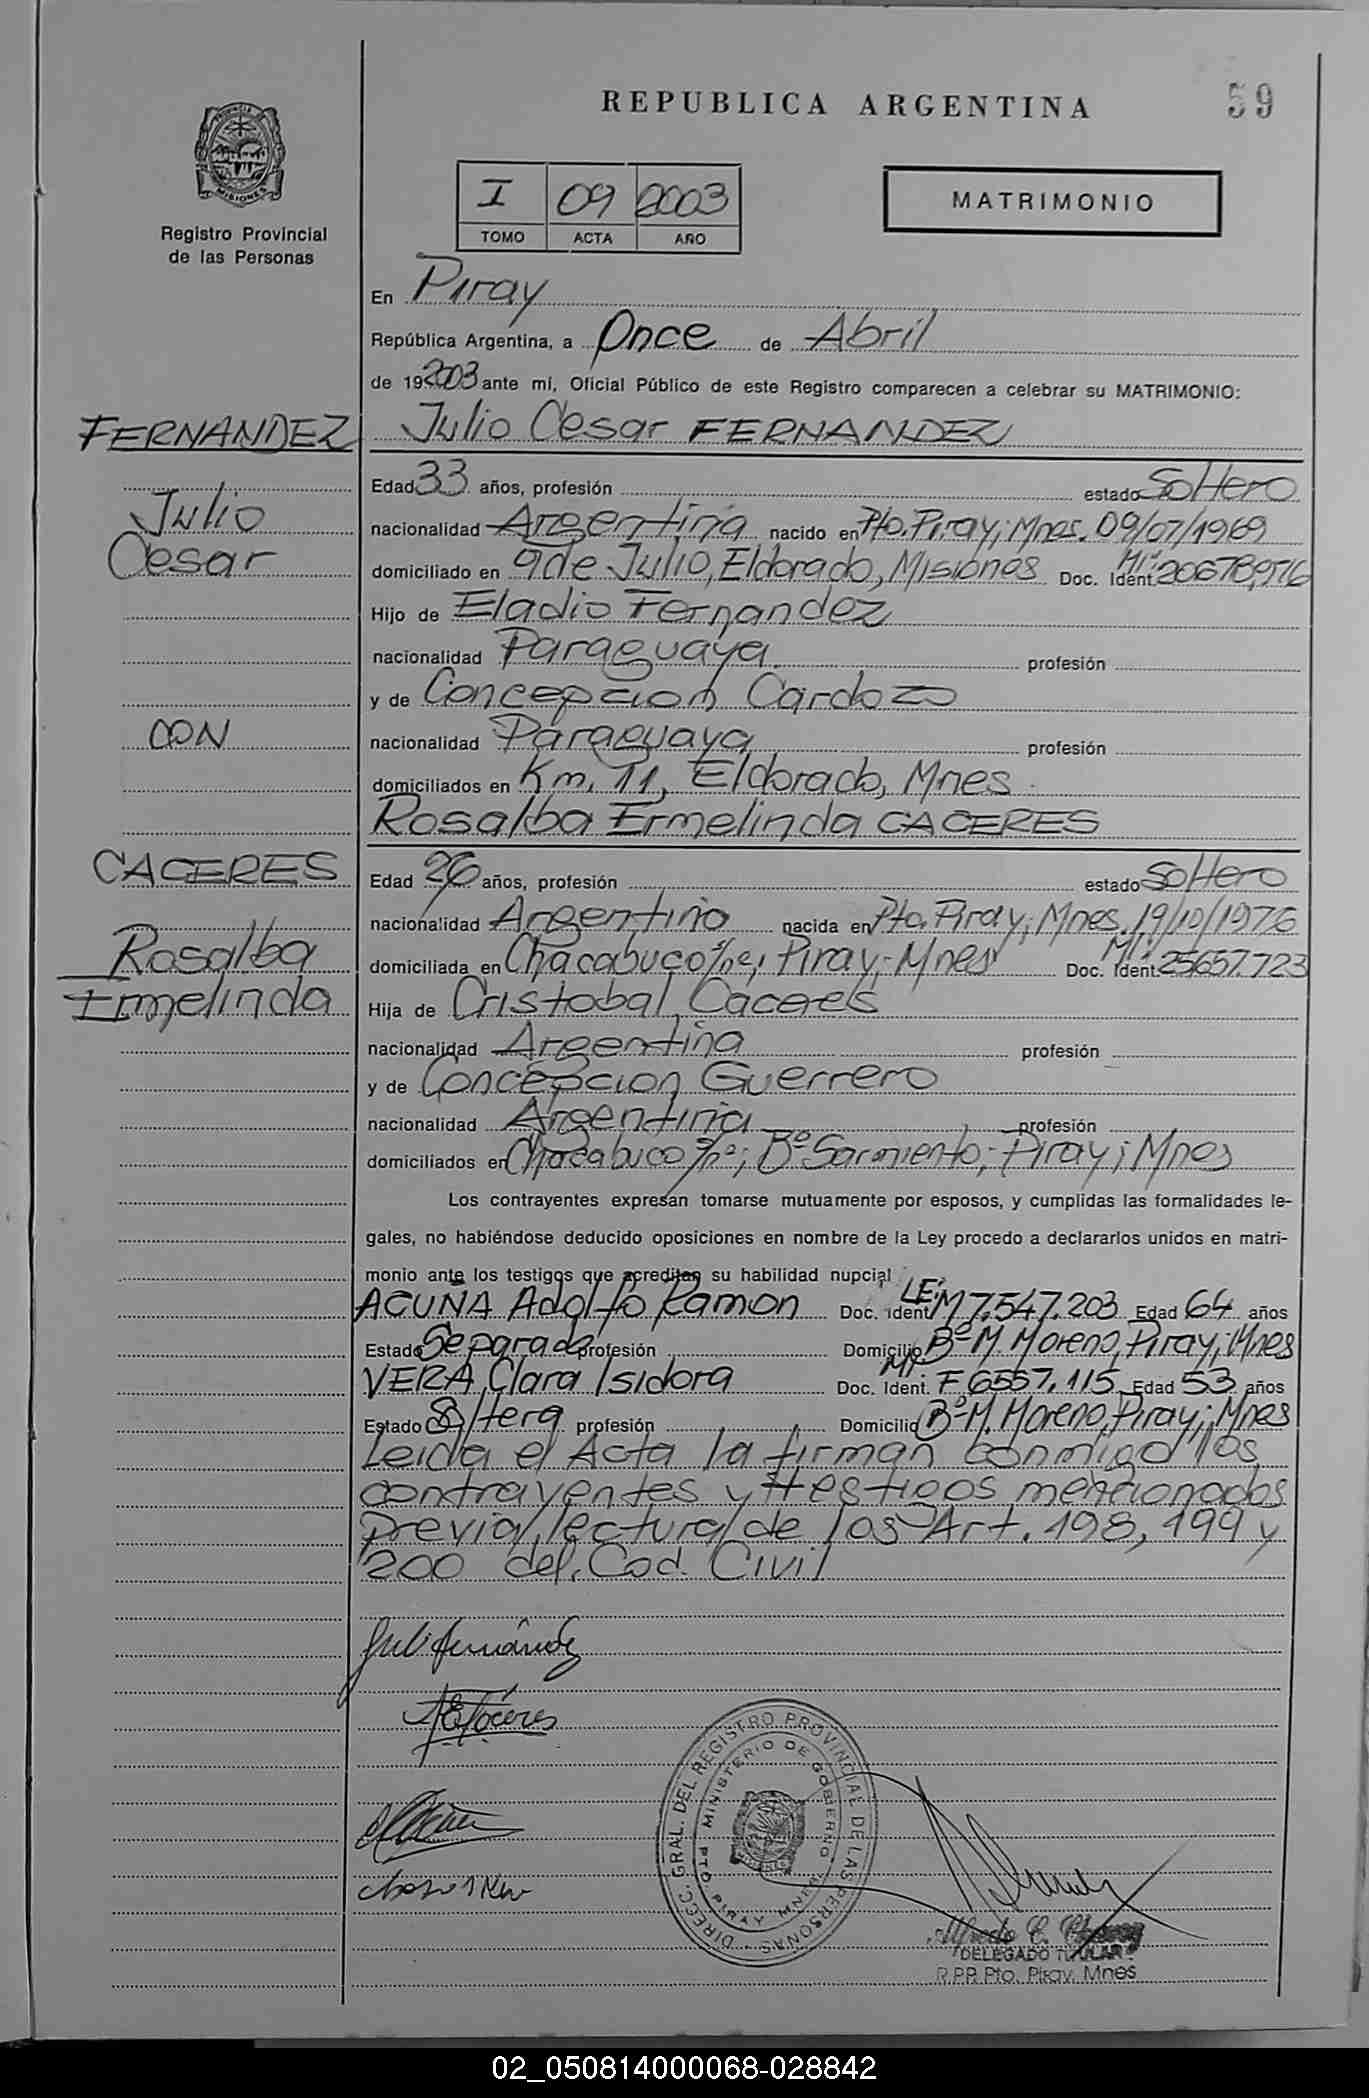 REPUBLICA ARGENTINA
59
PROVINCIA DE MISIONES
Registro Provincial
de las Personas
I 09 2003
TOMO ACTA AÑO
MATRIMONIO
En Piray
República Argentina, a Once de Abril
de 192003 ante mí, Oficial Público de este Registro comparecen a celebrar su MATRIMONIO:
FERNANDEZ
Julio
Cesar
CON
CACERES
Rosalba
Ermelinda
Julio Cesar FERNANDEZ
Edad 33 años, profesión estado Soltero
nacionalidad Argentina nacido en Pto. Piray, Mnes. 09/07/1969
domiciliado en 9 de Julio, Eldorado, Misiones Doc. Ident. MI: 20678,976
Hijo de Eladio Fernandez
nacionalidad Paraguaya profesión
y de Concepcion Cardozo
nacionalidad Paraguaya profesión
domiciliados en Km. 11, Eldorado, Mnes
Rosalba Ermelinda CACERES
Edad 26 años, profesión estado Soltero
nacionalidad Argentino nacida en Pto. Piray, Mnes. 19/10/1976
domiciliada en Chacabuco s/nº, Piray, Mnes Doc. Ident. MI: 25657.723
Hija de Cristobal Caceres
nacionalidad Argentina profesión
y de Concepcion Guerrero
nacionalidad Argentina profesión
domiciliados en Chacabuco s/nº; Bº Sarmiento; Piray; Mnes
Los contrayentes expresan tomarse mutuamente por esposos, y cumplidas las formalidades le-
gales, no habiéndose deducido oposiciones en nombre de la Ley procedo a declararlos unidos en matri-
monio ante los testigos que acreditan su habilidad nupcial
ACUÑA Adolfo Ramon Doc. Ident. LE: M 7.547.203 Edad 64 años
Estado Separado profesión Domicilio Bº M. Moreno, Piray, Mnes
VERA, Clara Isidora Doc. Ident. MI F 6557.115 Edad 53 años
Estado Soltera profesión Domicilio Bº M. Moreno, Piray; Mnes
Leida el Acta la firman conmigo los
contrayentes y ttestigos mencionados
previa lectura de los Art. 198, 199 y
200 del. Cod. Civil
DIRECC. GRAL. DEL REGISTRO PROVINCIAL DE LAS PERSONAS
MINISTERIO DE GOBIERNO
PTO. PIRAY MNES
Alfredo C.
DELEGADO TITULAR
R.P.P. Pto. Piray, Mnes
02_050814000068-028842